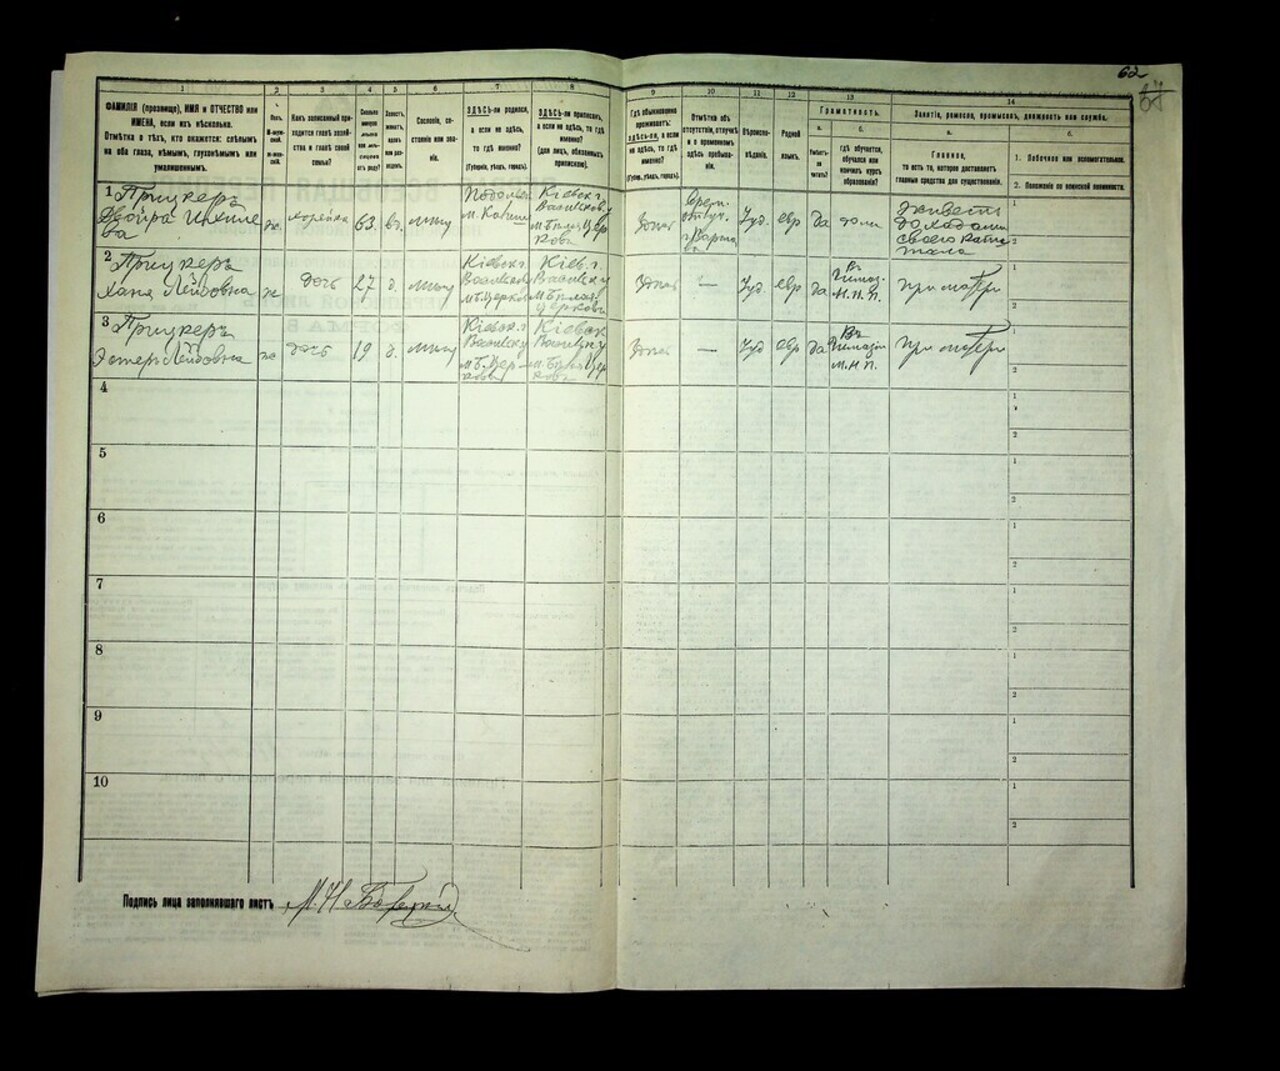 62
1 2 3 4 5 6 7 8 9 10 11 12 13 14
ФАМИЛІЯ (прозвище), ИМЯ и ОТЧЕСТВО или
ИМЕНА, если ихъ нѣсколько.
Отмѣтка о тѣхъ, кто окажется: слѣпымъ
на оба глаза, нѣмымъ, глухонѣмымъ или
умалишеннымъ.
Полъ.
М-мужской.
Ж-женскій.
Какъ записанный при-
ходится главѣ хозяй-
ства и главѣ своей
семьи?
Сколько
минуло
лѣтъ
или мѣ-
сяцевъ
отъ роду?
Холостъ,
женатъ,
вдовъ
или раз-
веденъ.
Сословіе, со-
стояніе или зва-
ніе.
ЗДѢСЬ-ли родился,
а если не здѣсь,
то гдѣ именно?
(Губернія, уѣздъ, городъ).
ЗДѢСЬ-ли приписанъ,
а если не здѣсь, то гдѣ
именно?
(для лицъ, обязанныхъ
припискою).
Гдѣ обыкновенно
проживаетъ:
здѣсь-ли, а если
не здѣсь, то гдѣ
именно?
(Губерн., уѣздъ, городъ).
Отмѣтка объ
отсутствіи, отлучкѣ
и о временномъ
здѣсь пребыва-
ніи.
Вѣроиспо-
вѣданіе.
Родной
языкъ.
Грамотность.
а.
Умѣетъ-
ли
читать?
б.
гдѣ обучается,
обучался или
кончилъ курсъ
образованія?
Занятіе, ремесло, промыселъ, должность или служба.
а.
Главное,
то есть то, которое доставляетъ
главныя средства для существованія.
б.
1. Побочное или вспомогательное.
2. Положеніе по воинской повинности.
1 Прицкеръ
Двойра
ва
ж. хозяйка 63. вд.
Подольск
Кіевск г.
Васильков.
Церкови
Врем.
отлуч.
г. Варша
ва
Іуд. евр да дома
Живетъ
доходами
своего капи
тала
1
2
2 Прицкеръ
Хана Лейбовна
ж дочь 27 д.
Кіевск г.
Кіев. г.
Васильк у
Церкови
— Іуд. евр да
Въ
Гимназ.
М.Н.П.
При матери
1
2
3 Прицкеръ
Эстеръ Лейбовна
ж дочь 19 д.
Кіевск. г
Кіевск
Васильк у
м Б. Цер-
кови
— Іуд евр да
Въ
Гимназіи
М.Н.П.
При матери
1
2
4
1
2
5
1
2
6
1
2
7
1
2
8
1
2
9
1
2
10
1
2
Подпись лица заполнявшаго листъ